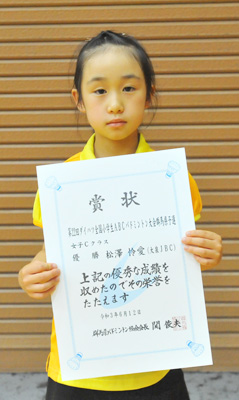 賞状
第22回ダイハツ全国小学生ABCバドミントン大会群馬県予選
女子Cクラス
優勝 松澤 怜愛(大泉JBC)
上記の優秀な成績を
収めたのでその栄誉を
たたえます
令和3年6月12日
群馬県バドミントン協会会長 関 俊夫